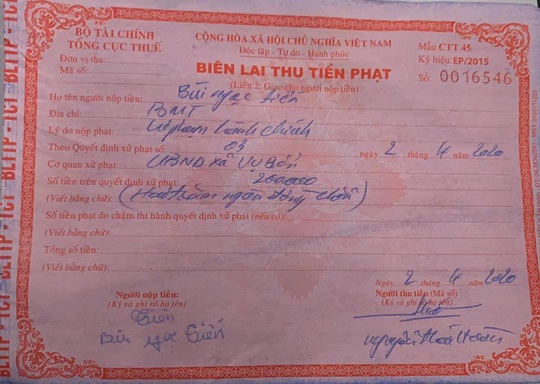 BỘ TÀI CHÍNH
TỔNG CỤC THUẾ
Đơn vị thu:
Mã số:
CỘNG HÒA XÃ HỘI CHỦ NGHĨA VIỆT NAM
Độc lập - Tự do - Hạnh phúc
Mẫu CTT 45
Ký hiệu: EP/2015
Số: 0016546
BIÊN LAI THU TIỀN PHẠT
(Liên 2: Giao cho người nộp tiền)
Họ tên người nộp tiền: Bùi ngọc Tiến
Địa chỉ: BMT
Lý do nộp phạt: Vi phạm hành chính
Theo Quyết định xử phạt số: 03 ngày 2 tháng 4 năm 2020
Cơ quan xử phạt: UBND xã Vụ Bổn
Số tiền trên quyết định xử phạt: 200000
(Viết bằng chữ): (Hai trăm ngàn đồng chẵn)
Số tiền phạt do chậm thi hành quyết định xử phạt (nếu có):
(Viết bằng chữ):
Tổng số tiền:
(Viết bằng chữ):
ngày 2 tháng 4 năm 2020
Người nộp tiền:
(Ký và ghi rõ họ tên)
Tiến
Bùi ngọc Tiến
Người thu tiền (Mã số)
(Ký và ghi rõ họ tên)
BLTTP - TCT - BLTTP - TCT